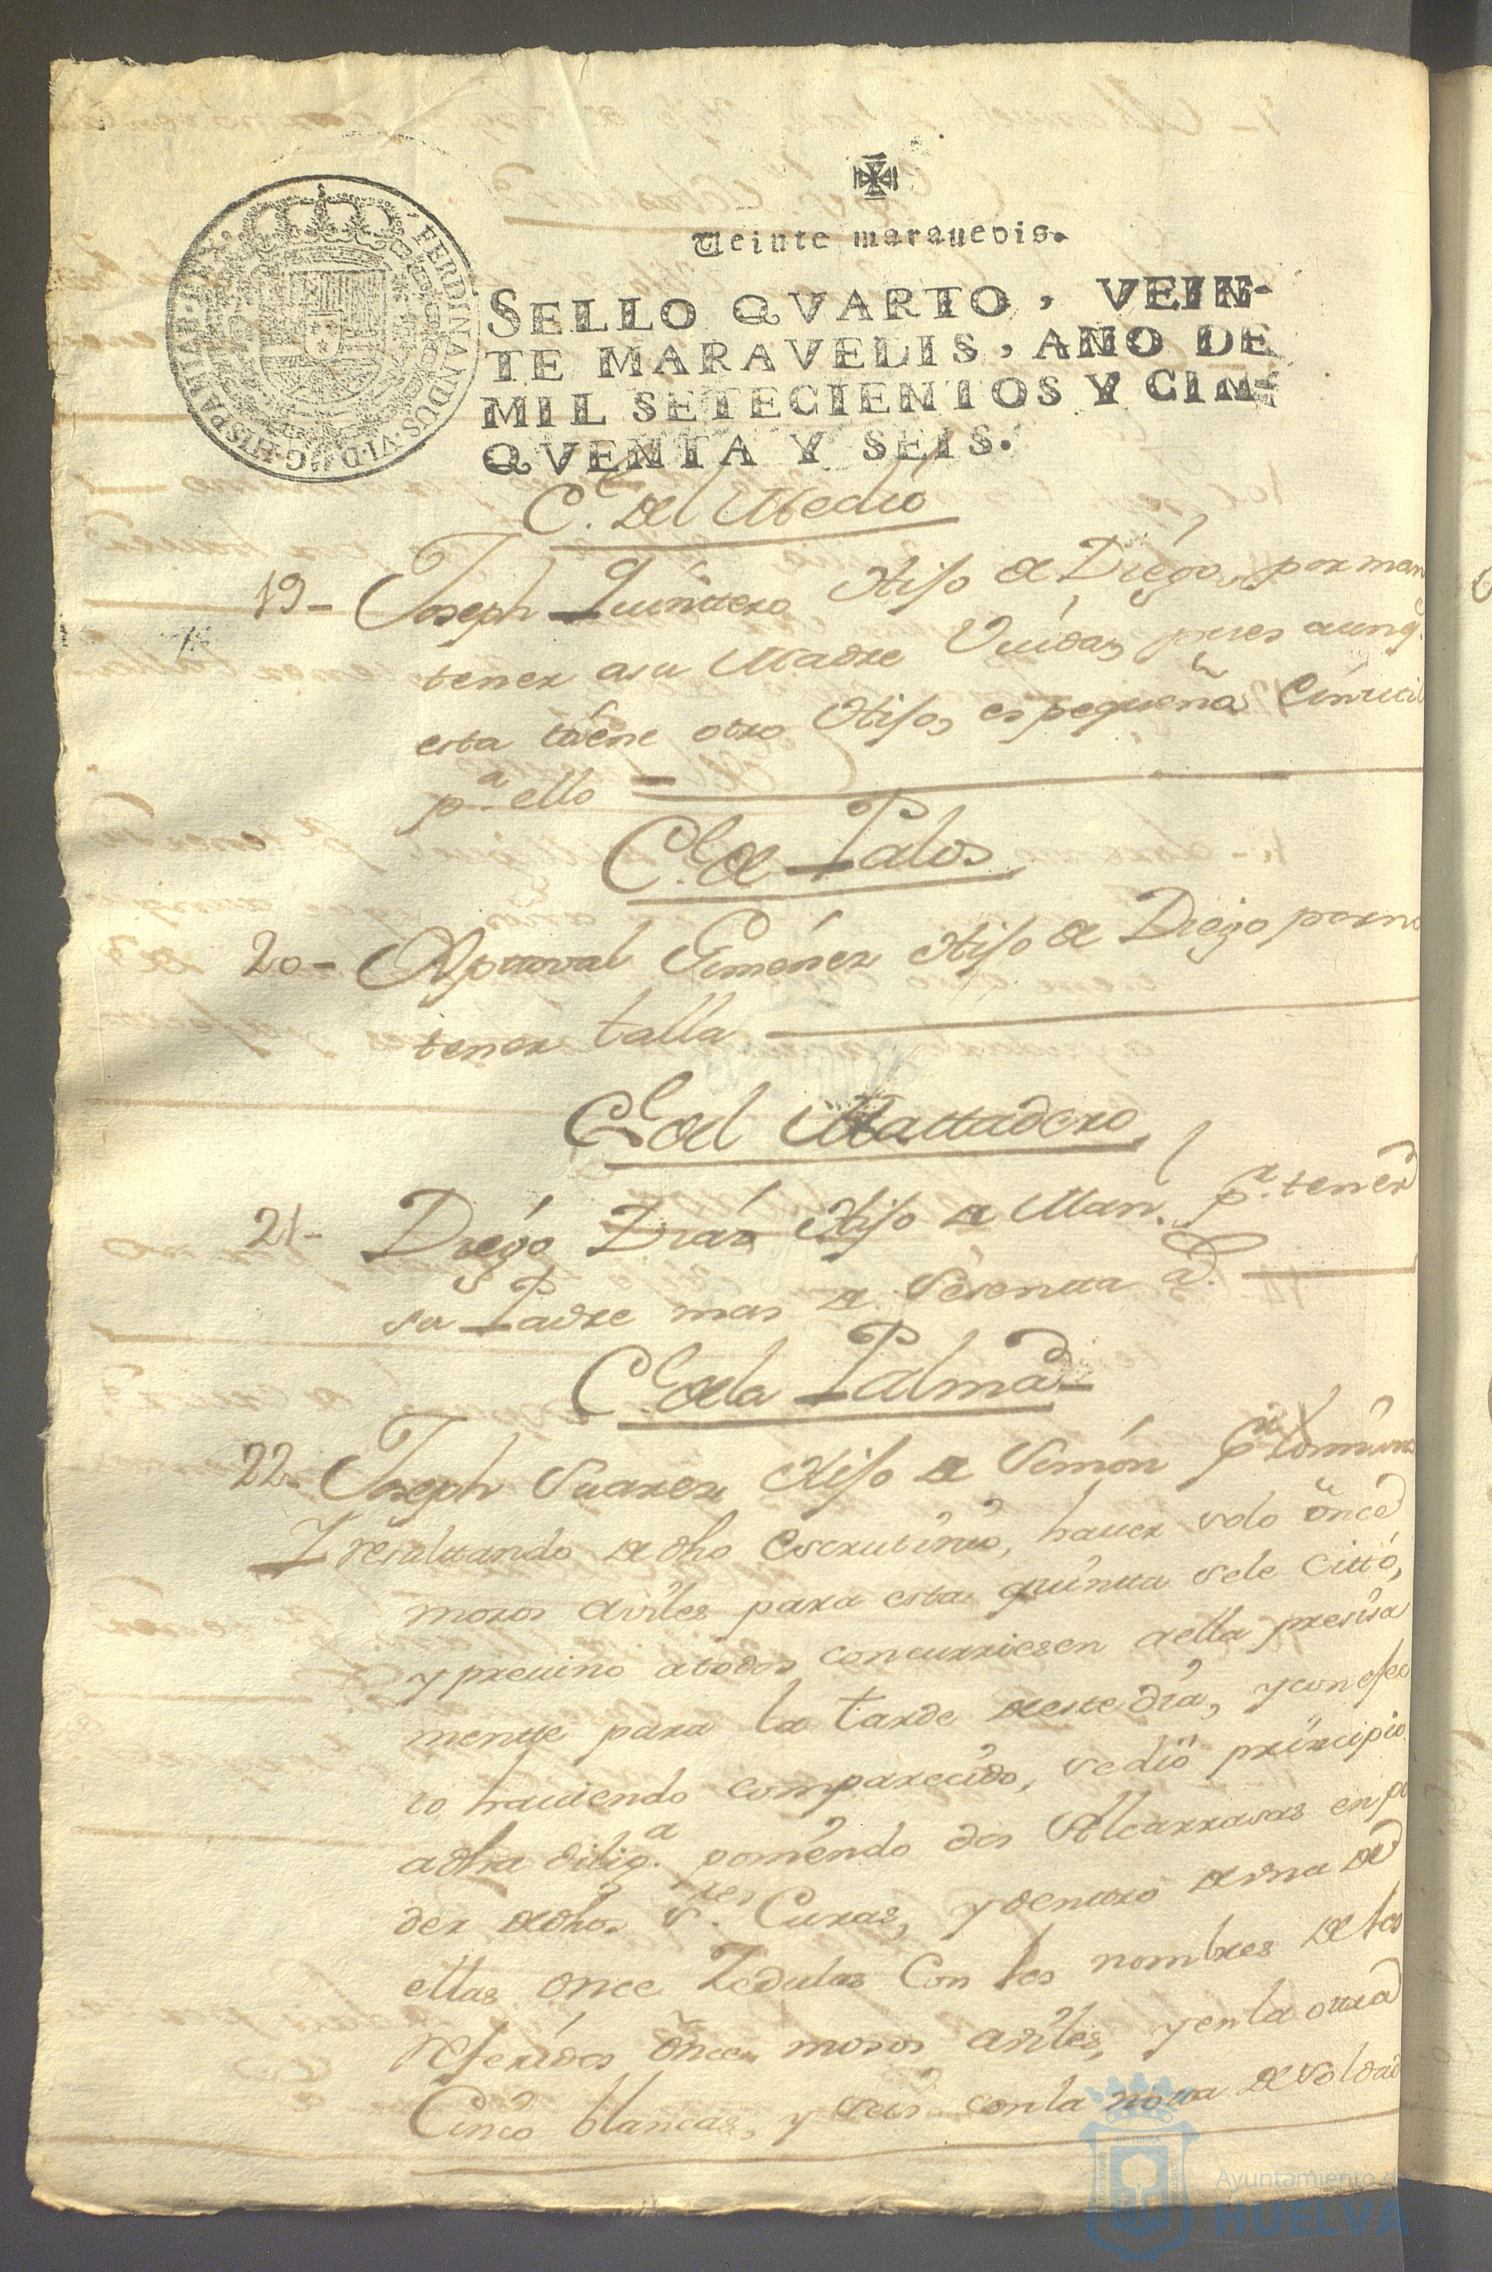 FERDINANDUS·VI·D·G·HISPANIAR·REX·
Veinte marauedis.
SELLO QVARTO, VEIN-
TE MARAVEDIS, AÑO DE
MIL SETECIENTOS Y CIN-
QVENTA Y SEIS.
C.e del Medio
19- Joseph Quintero, Hijo de Diego, por man
tener asu Madre Viuda, pues aunq.
esta tiene otro Hijo, es pequeño e inutil
p.a ello
C.l de Palos
20- Xptoval Giménez Hijo de Diego por no
tener talla
C.l del Mattadero
21- Diégo Diáz Hijo de Man.l p.r tener
su Padre mas de sesentta a.s
C.l de la Palma
22- Joseph Suarez Hijo de Simón
I resulttando de dho escrutinio, hauer solo once
mozos aviles para esta quintta se le cittó,
y preuino atodos concurriesen aella presisa
mentte para la tarde deeste dia, y con efec
to hauiendo comparecido, se dió principio
adha dilig.a poniendo dos Alcarrasas en po
der dedhos. s.res Curas, y denttro de una de
ellas once Zedulas con los nombres de los
referidos once mozos aviles, y en la ottra
Cinco blancas, y seis con la notta de soldad
Ayuntamiento de
HUELVA